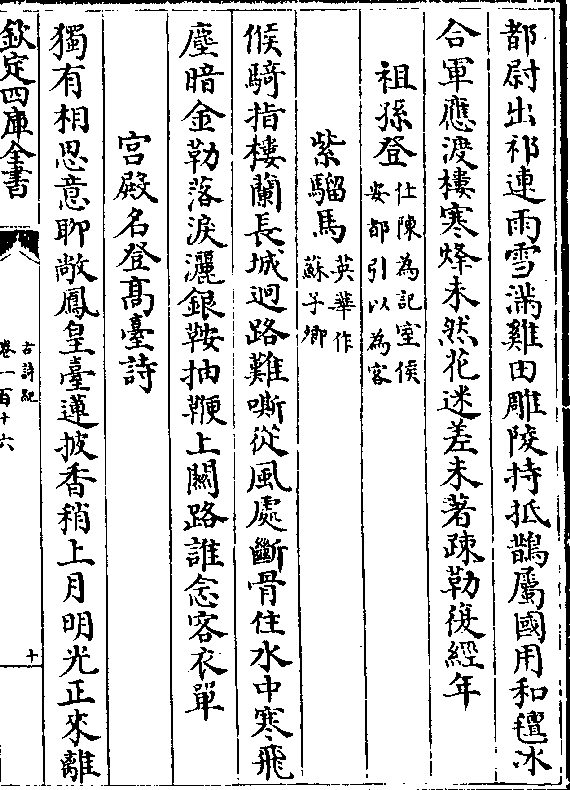 都尉出祁連雨雪滿雞田雕陵持抵鵲屬國用和氊冰
合軍應渡樓寒烽未然花迷差未著疎勒復經年
祖孫登仕陳為記室侯安都引以為客
紫騮馬英華作蘇子卿
候騎指樓蘭長城迥路難嘶從風處斷骨住水中寒飛
塵暗金勒落淚灑銀鞍抽鞭上關路誰念客衣單
宮殿名登髙臺詩
獨有相思意聊敞鳳皇臺蓮披香稍上月明光正來離
欽定四庫全書
古詩紀
卷一百十六
十